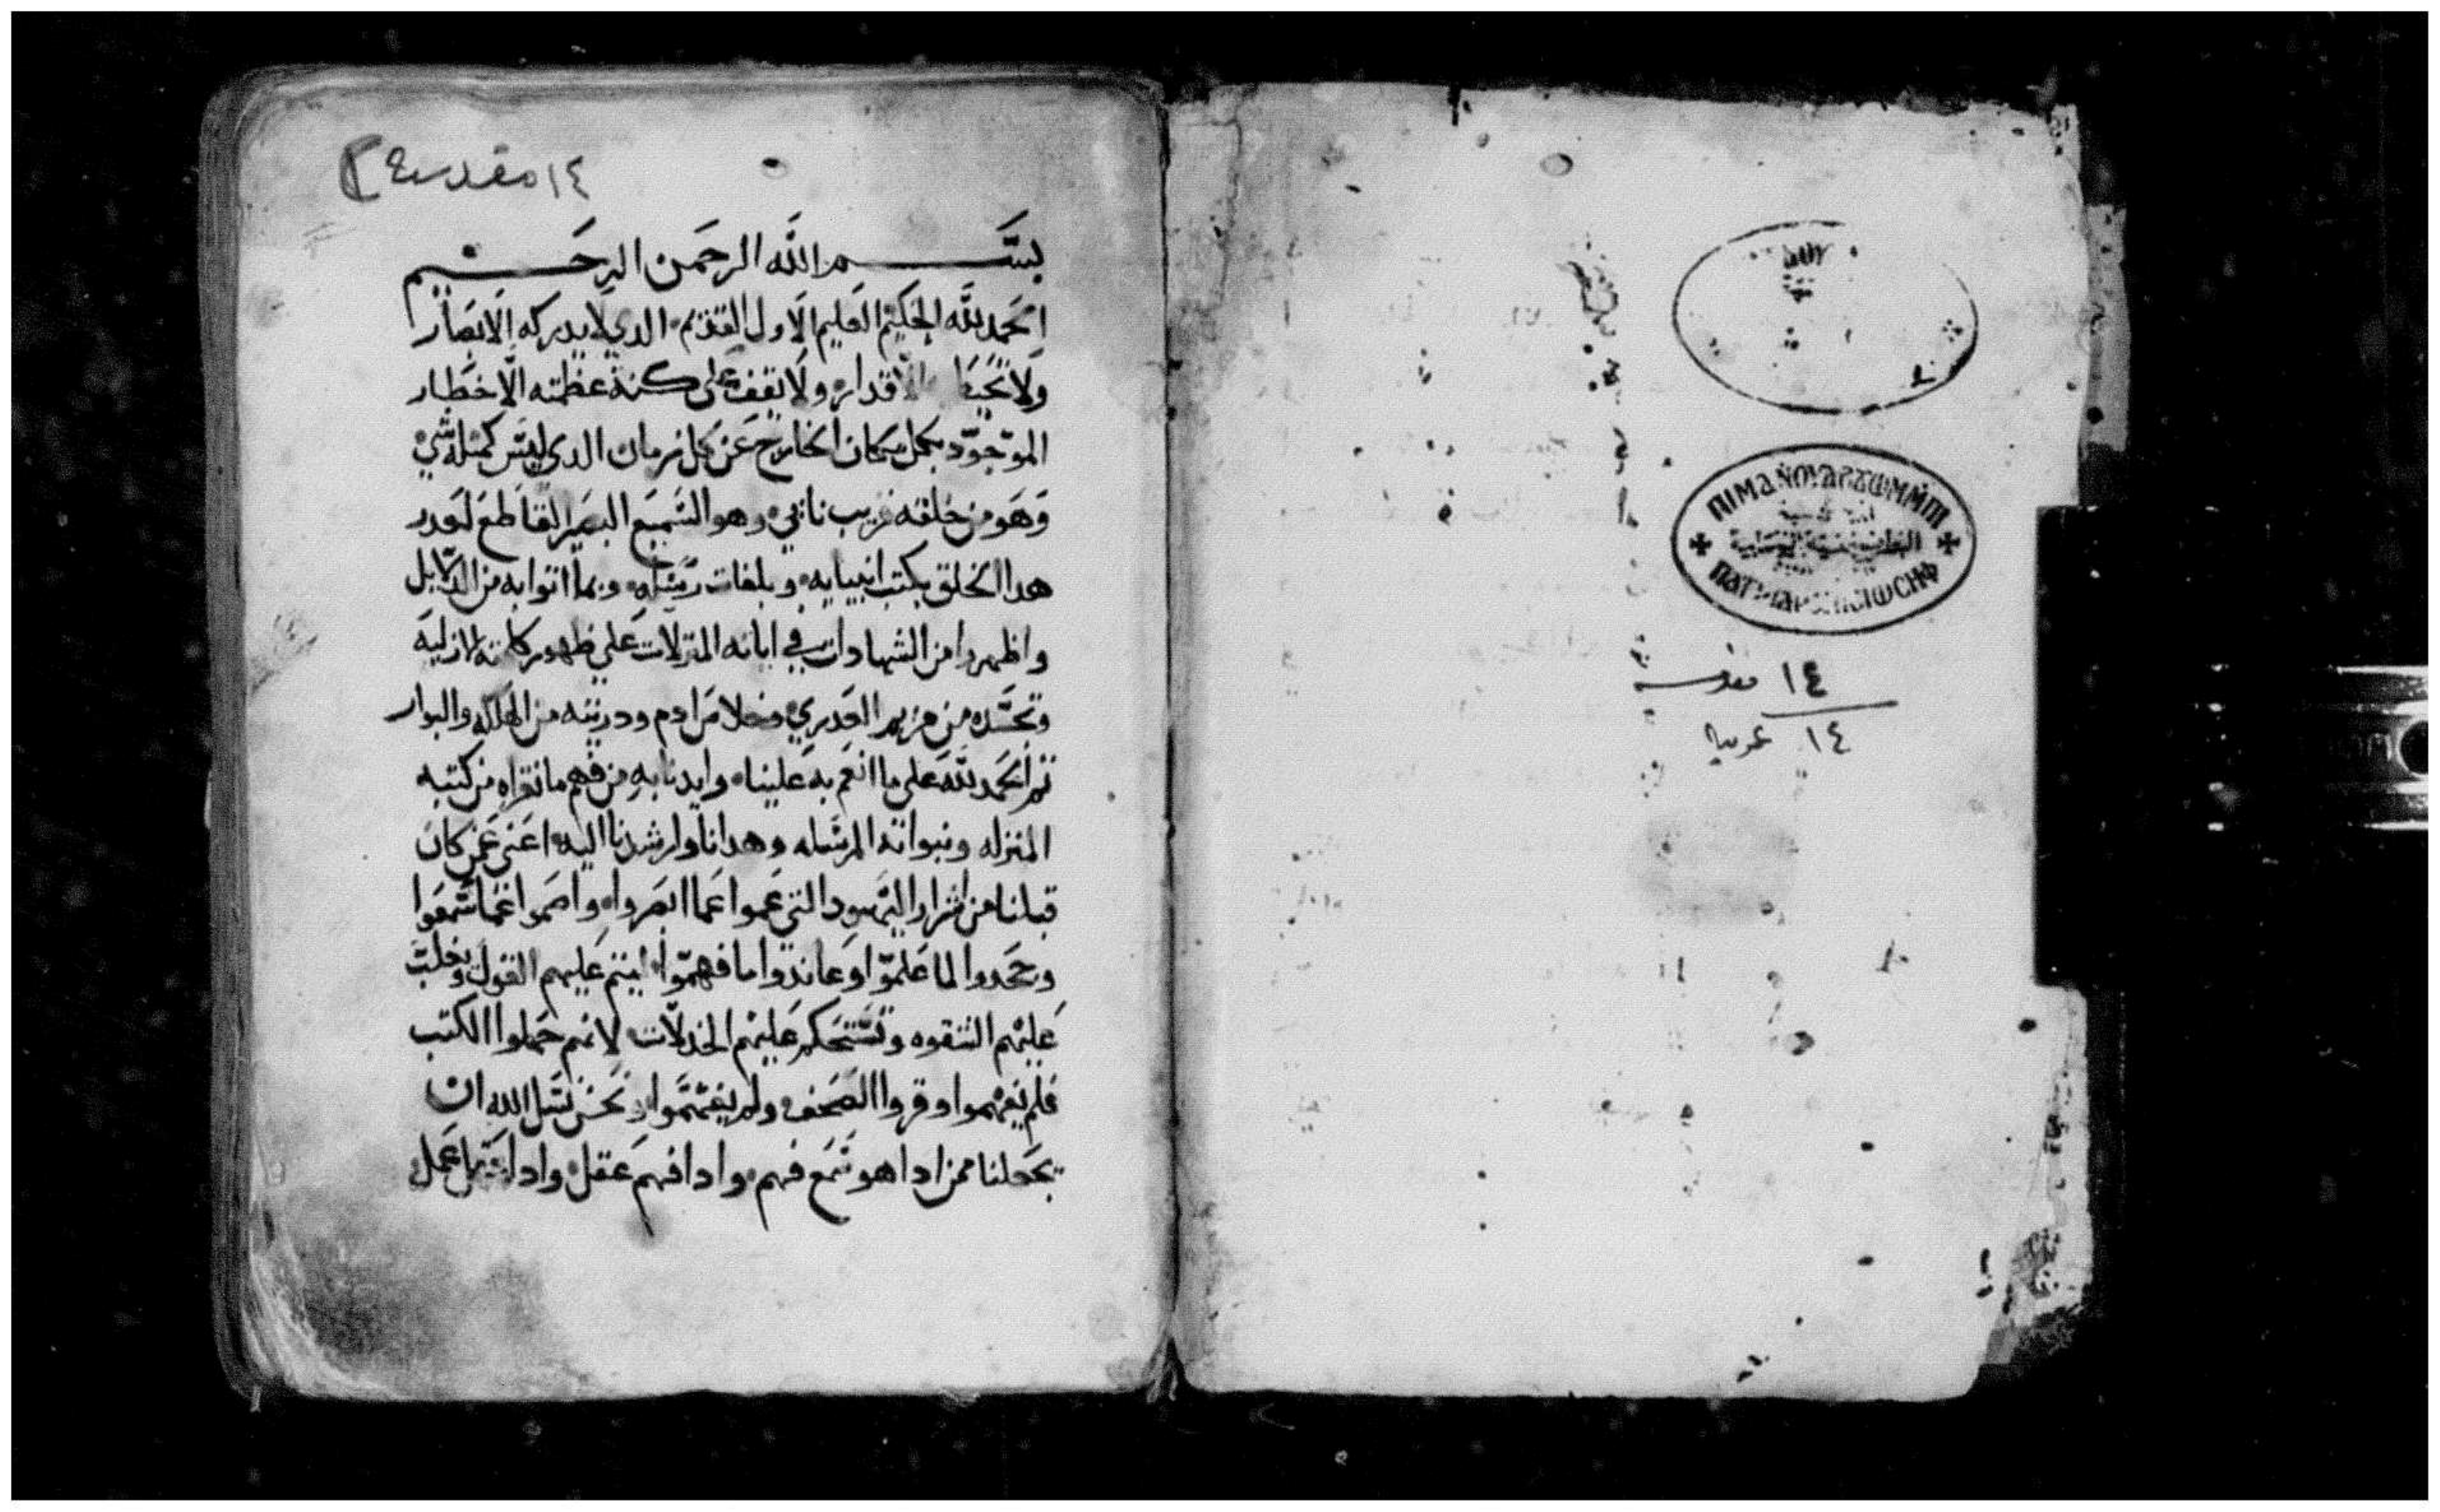 ١٤ مقدسة
بســم الله الرحمن الرحـيم
الحمد لله الحكيم العليم الاول القديم الدي لا يدركه الابصار
ولا تحيط الاقدار ولا تقف على كنه عظمته الاخطار
الموجود بكل مكان الخارج عن كل زمان الدي ليس كمتله شي
وهو من خلقه قريب ناتي وهو السميع البصير القاطع لعدر
هدا الخلق بكتب انبيايه وبلغات رسله وبما اتوا به من الدلايل
واظهروا من الشهادات في اياته المنزلات علي ظهور كلمته الازليه
وتجسده من مريم العدري وخلاص ادم ودريته من الهلكه والبوار
تم الحمد لله على ما انعم به علينا وايدنا به من فهم ما نقراه من كتبه
المنزله ونبواته المرسله وهدانا وارشدنا اليه اعني عمن كان
قبلنا من اشرار اليهود التي عموا عما ابصروا واصموا عما سمعوا
وجحدوا لما علموا وعاندوا ما فهموا ليتم عليهم القول وتغلب
عليهم الشقوه وتستحكم عليهم الخدلات لانهم حملوا الكتب
فلم يفهموا وقروا الصحف ولم يفهموا ونحن نسل الله ان
يجعلنا ممن ادا هو سمع فهم وادا فهم عقل وادا عمل
ⲠⲒⲘⲀ
البطريركية القبطية
١٤ مقدسة
١٤ عربية